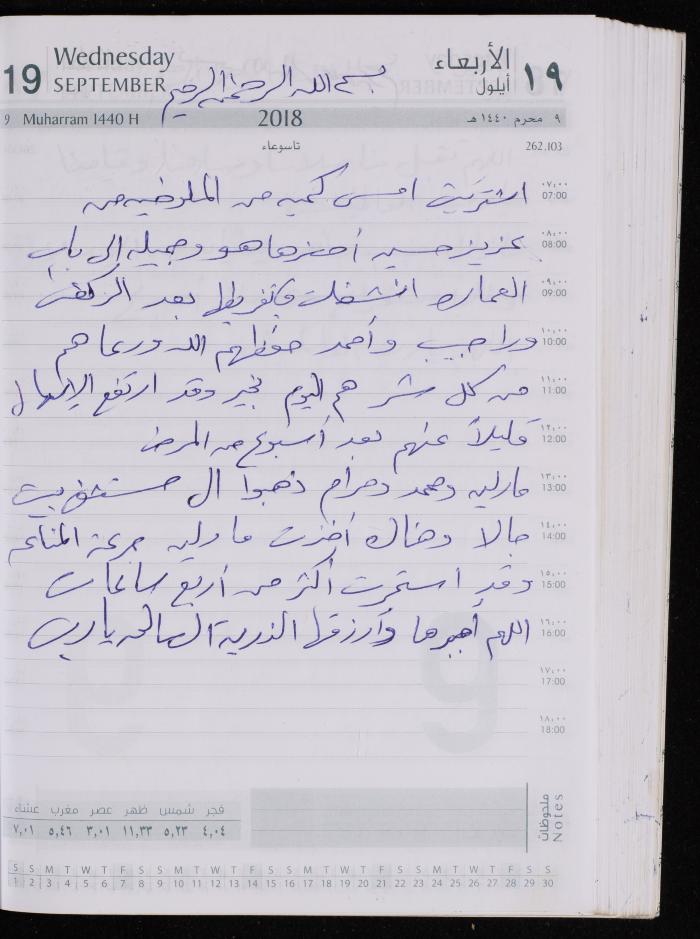 19 Wednesday SEPTEMBER
بسم الله الرحمن الرحيم
الأربعاء أيلول ١٩
9 Muharram 1440 H 2018 ٩ محرم ١٤٤٠ هـ
تاسوعاء 262.103
اشتريت امس كمية من الملوخيه من
٠٧،٠٠ 07:00
عزيز حسين أحضرها هو وجميله إلى باب
٠٨،٠٠ 08:00
العماره انشغلت بها
٠٩،٠٠ 09:00
وأحمد حفظهم الله ورعاهم
١٠،٠٠ 10:00
من كل شر هم اليوم بخير وقد ارتفع الإسهال
١١،٠٠ 11:00
قليلاً عنهم بعد أسبوع من المرض
١٢،٠٠ 12:00
مارلين ومحمد ومرام ذهبوا ال مستشفى بيت
١٣،٠٠ 13:00
جالا وهناك أخذت مارلين جرعة المناعه
١٤،٠٠ 14:00
وقد استمرت أكثر من أربع ساعات
١٥،٠٠ 15:00
اللهم أجبرها وارزقها الذرية الصالحه يا رب
١٦،٠٠ 16:00
١٧،٠٠ 17:00
١٨،٠٠ 18:00
ملحوظات Notes
فجر شمس ظهر عصر مغرب عشاء
٤,٠٤ ٥,٢٣ ١١,٣٣ ٣,٠١ ٥,٤٦ ٧,٠١
S S M T W T F S S M T W T F S S M T W T F S S M T W T F S S
1 2 3 4 5 6 7 8 9 10 11 12 13 14 15 16 17 18 19 20 21 22 23 24 25 26 27 28 29 30